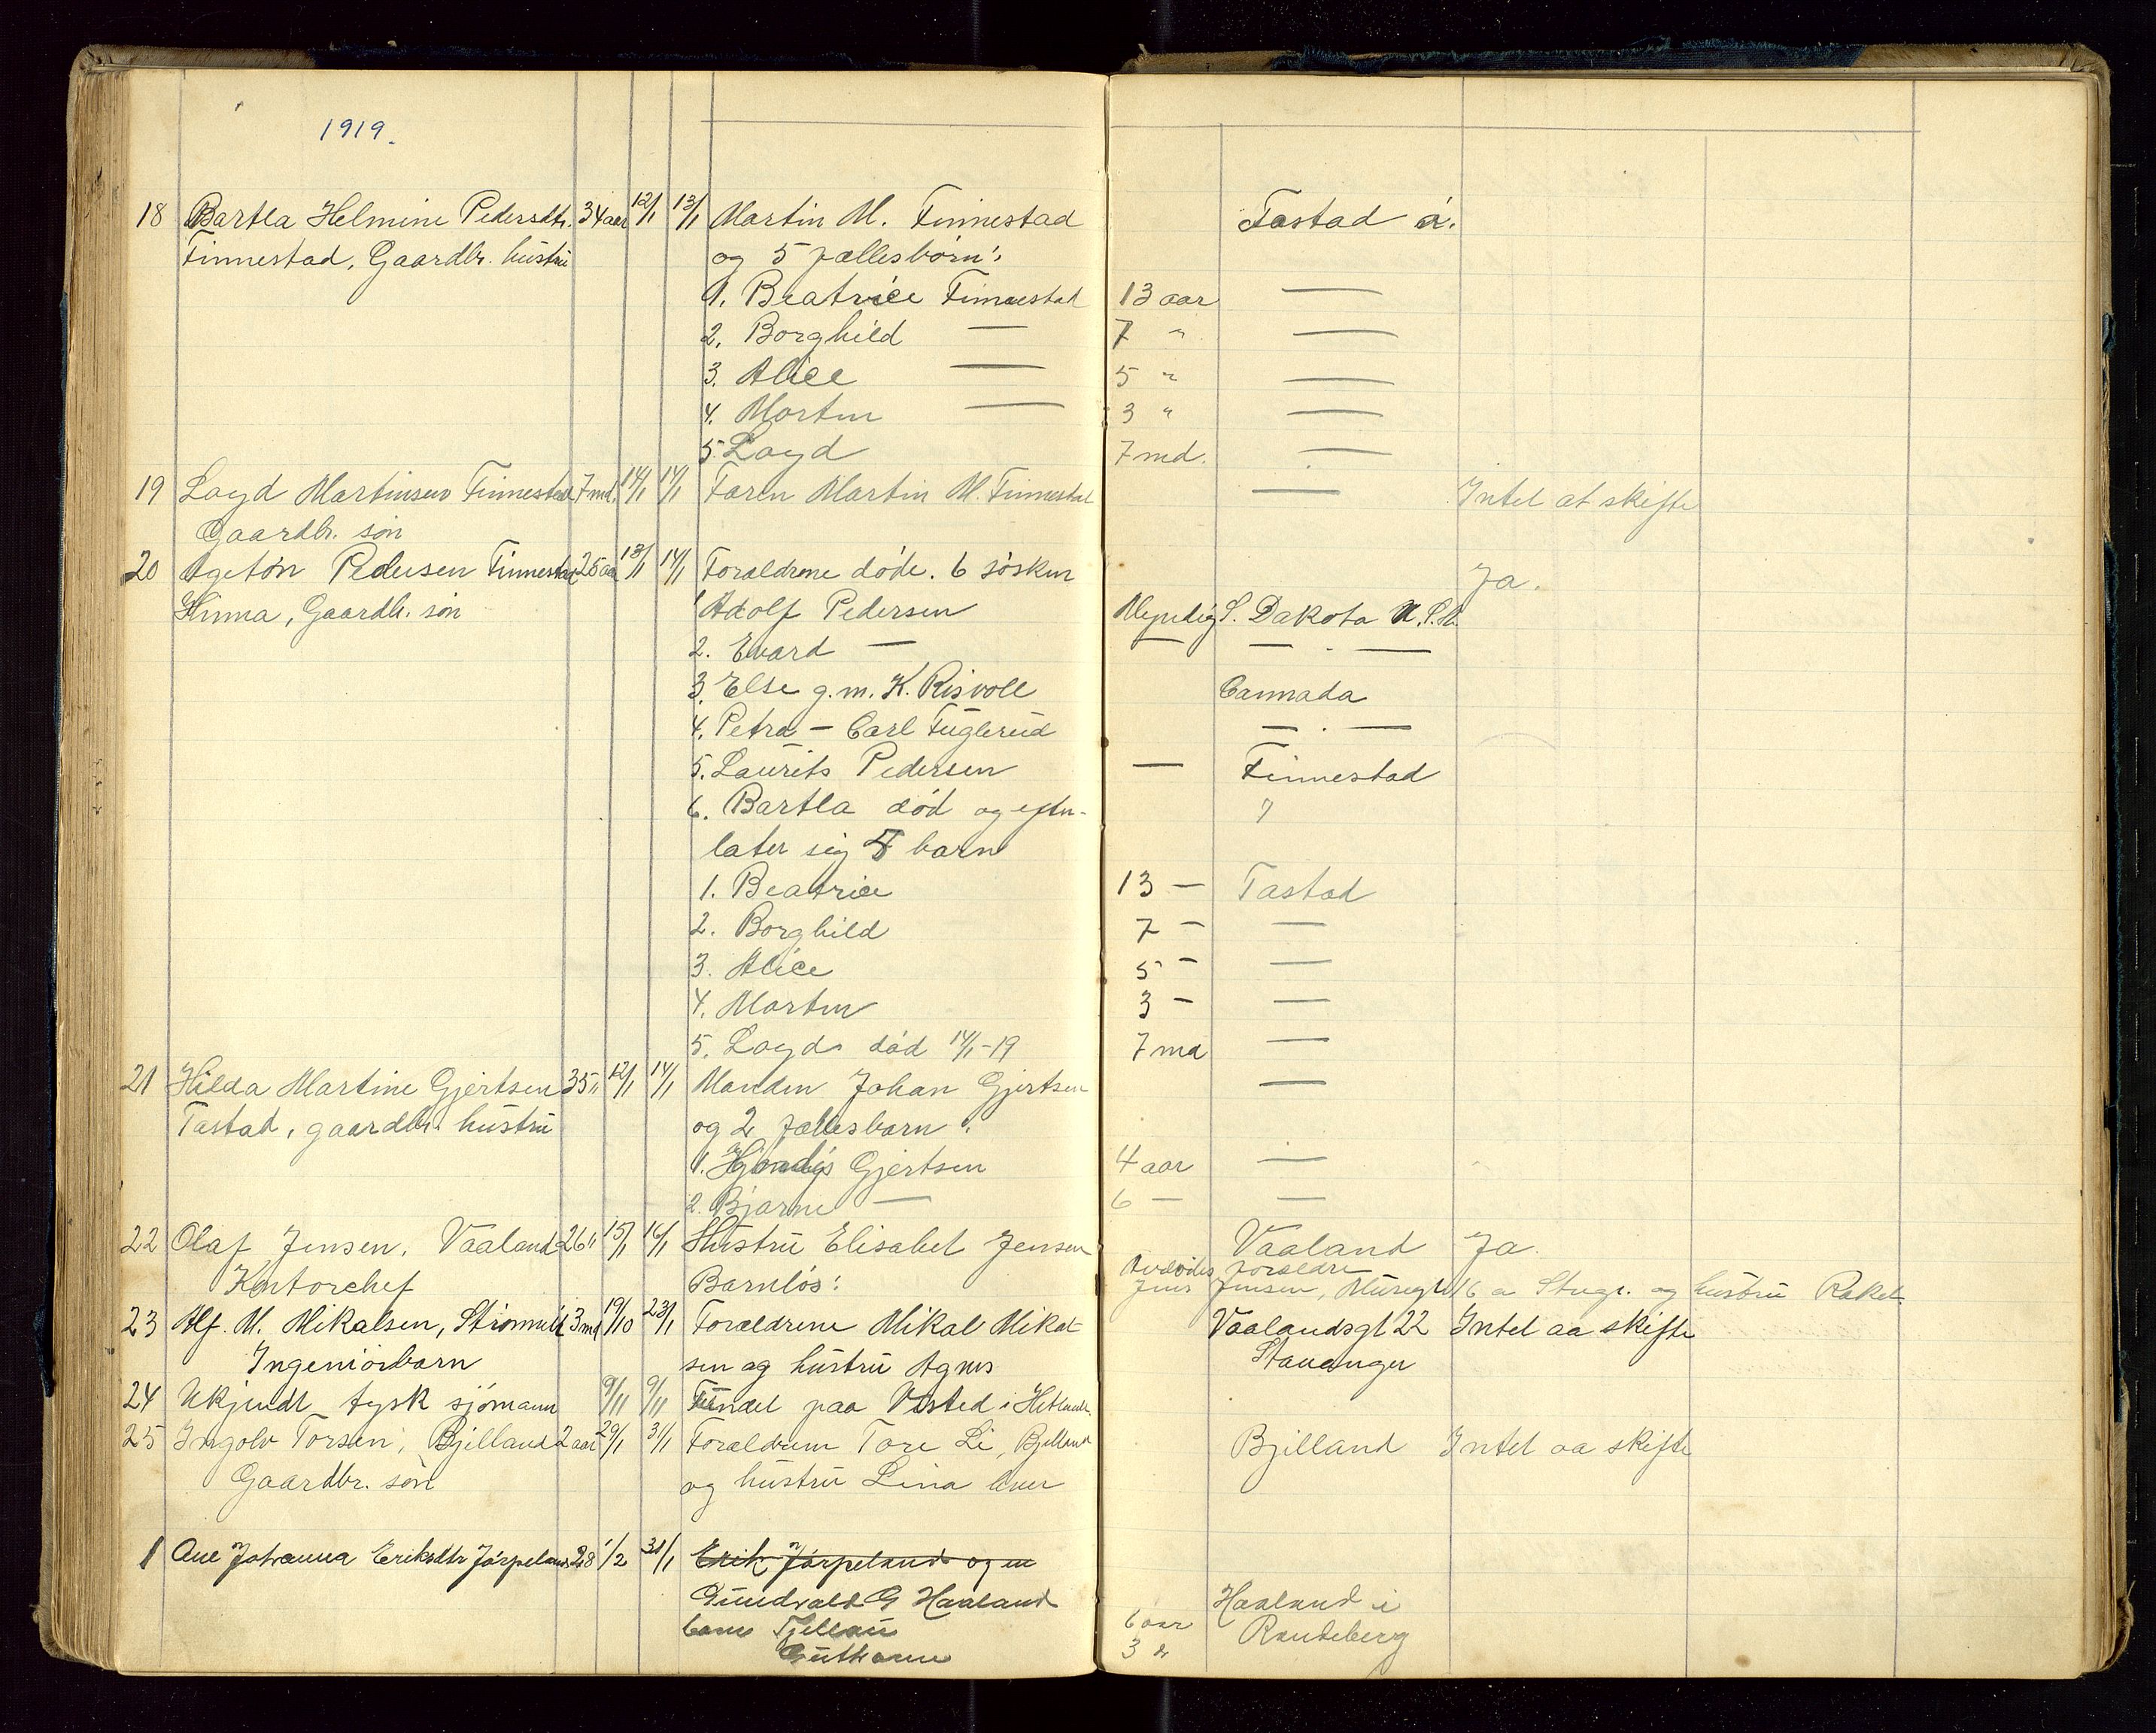 1919.
18 Bartla Helmine Pedersdtr. 34 aar 12/1 13/1 Martin M. Finnestad Tastad
Finnestad, Gaardbr. hustru og 5 fællesbørn:
1. Beatrice Finnestad 13 aar —
2. Borghild — 7 " —
3. Alice — 5 " —
4. Morten — 3 " —
5. Loyd 7 md. —
19 Loyd Martinsen Finnestad 7 md. 14/1 14/1 Faren Martin M. Finnestad — Intet at skifte
Gaardbr. søn
20 Pedersen Finnestad 25 aar 13/1 14/1 Forældrene døde. 6 søsken Ja.
Hinna, Gaardbr. søn 1 Adolf Pedersen Myndig S. Dakota
2. Evard — — — . —
3. Else g.m. K. Risvoll Cannada
4. Petra — Carl Fuglerud — . —
5. Laurits Pedersen — Finnestad
6. Bartla død og efter- "
later sig 5 barn
1. Beatrice 13 — Tastad
2. Borghild 7 — —
3. Alice 5 — —
4. Morten 3 — —
5. Loyd død 14/1-19 7 md —
21 Hilda Martine Gjertsen 35 " 12/1 14/1 Manden Johan Gjertsen —
Tastad, gaardbr. hustru og 2 fællesbarn:
1. Hjørdis Gjertsen 4 aar —
2. Bjarne — 6 — —
22 Olaf Jensen, Vaaland 26 " 15/1 16/1 Hustru Elisabet Jensen Vaaland Ja.
Kontorchef Barnløs: Avdødes forældre
Jens Jensen, Musegt 16 a Stvgr. og hustru Rakel.
23 Alf. M. Mikalsen, 3 md 19/10 23/1 Forældrene Mikal Mikal- Vaalandsgt 22 Intet aa skifte
Ingeniørbarn sen og hustru Agnes Stavanger
24 Ukjendt tysk sjømann 9/11 9/11 Fundet paa Visted i Hetland.
25 Ingolv Torsen, Bjelland 2 aar 29/1 31/1 Forældrene Tore Li, Bjelland Bjelland Intet aa skifte
Gaardbr. søn og hustru Lina lever
1 Ane Johanna Eriksdtr Jørpeland 28 1/2 31/1 Erik Jørpeland og en
Gundvald G Haaland Haaland i
barn 6 aar Randeberg
3 "